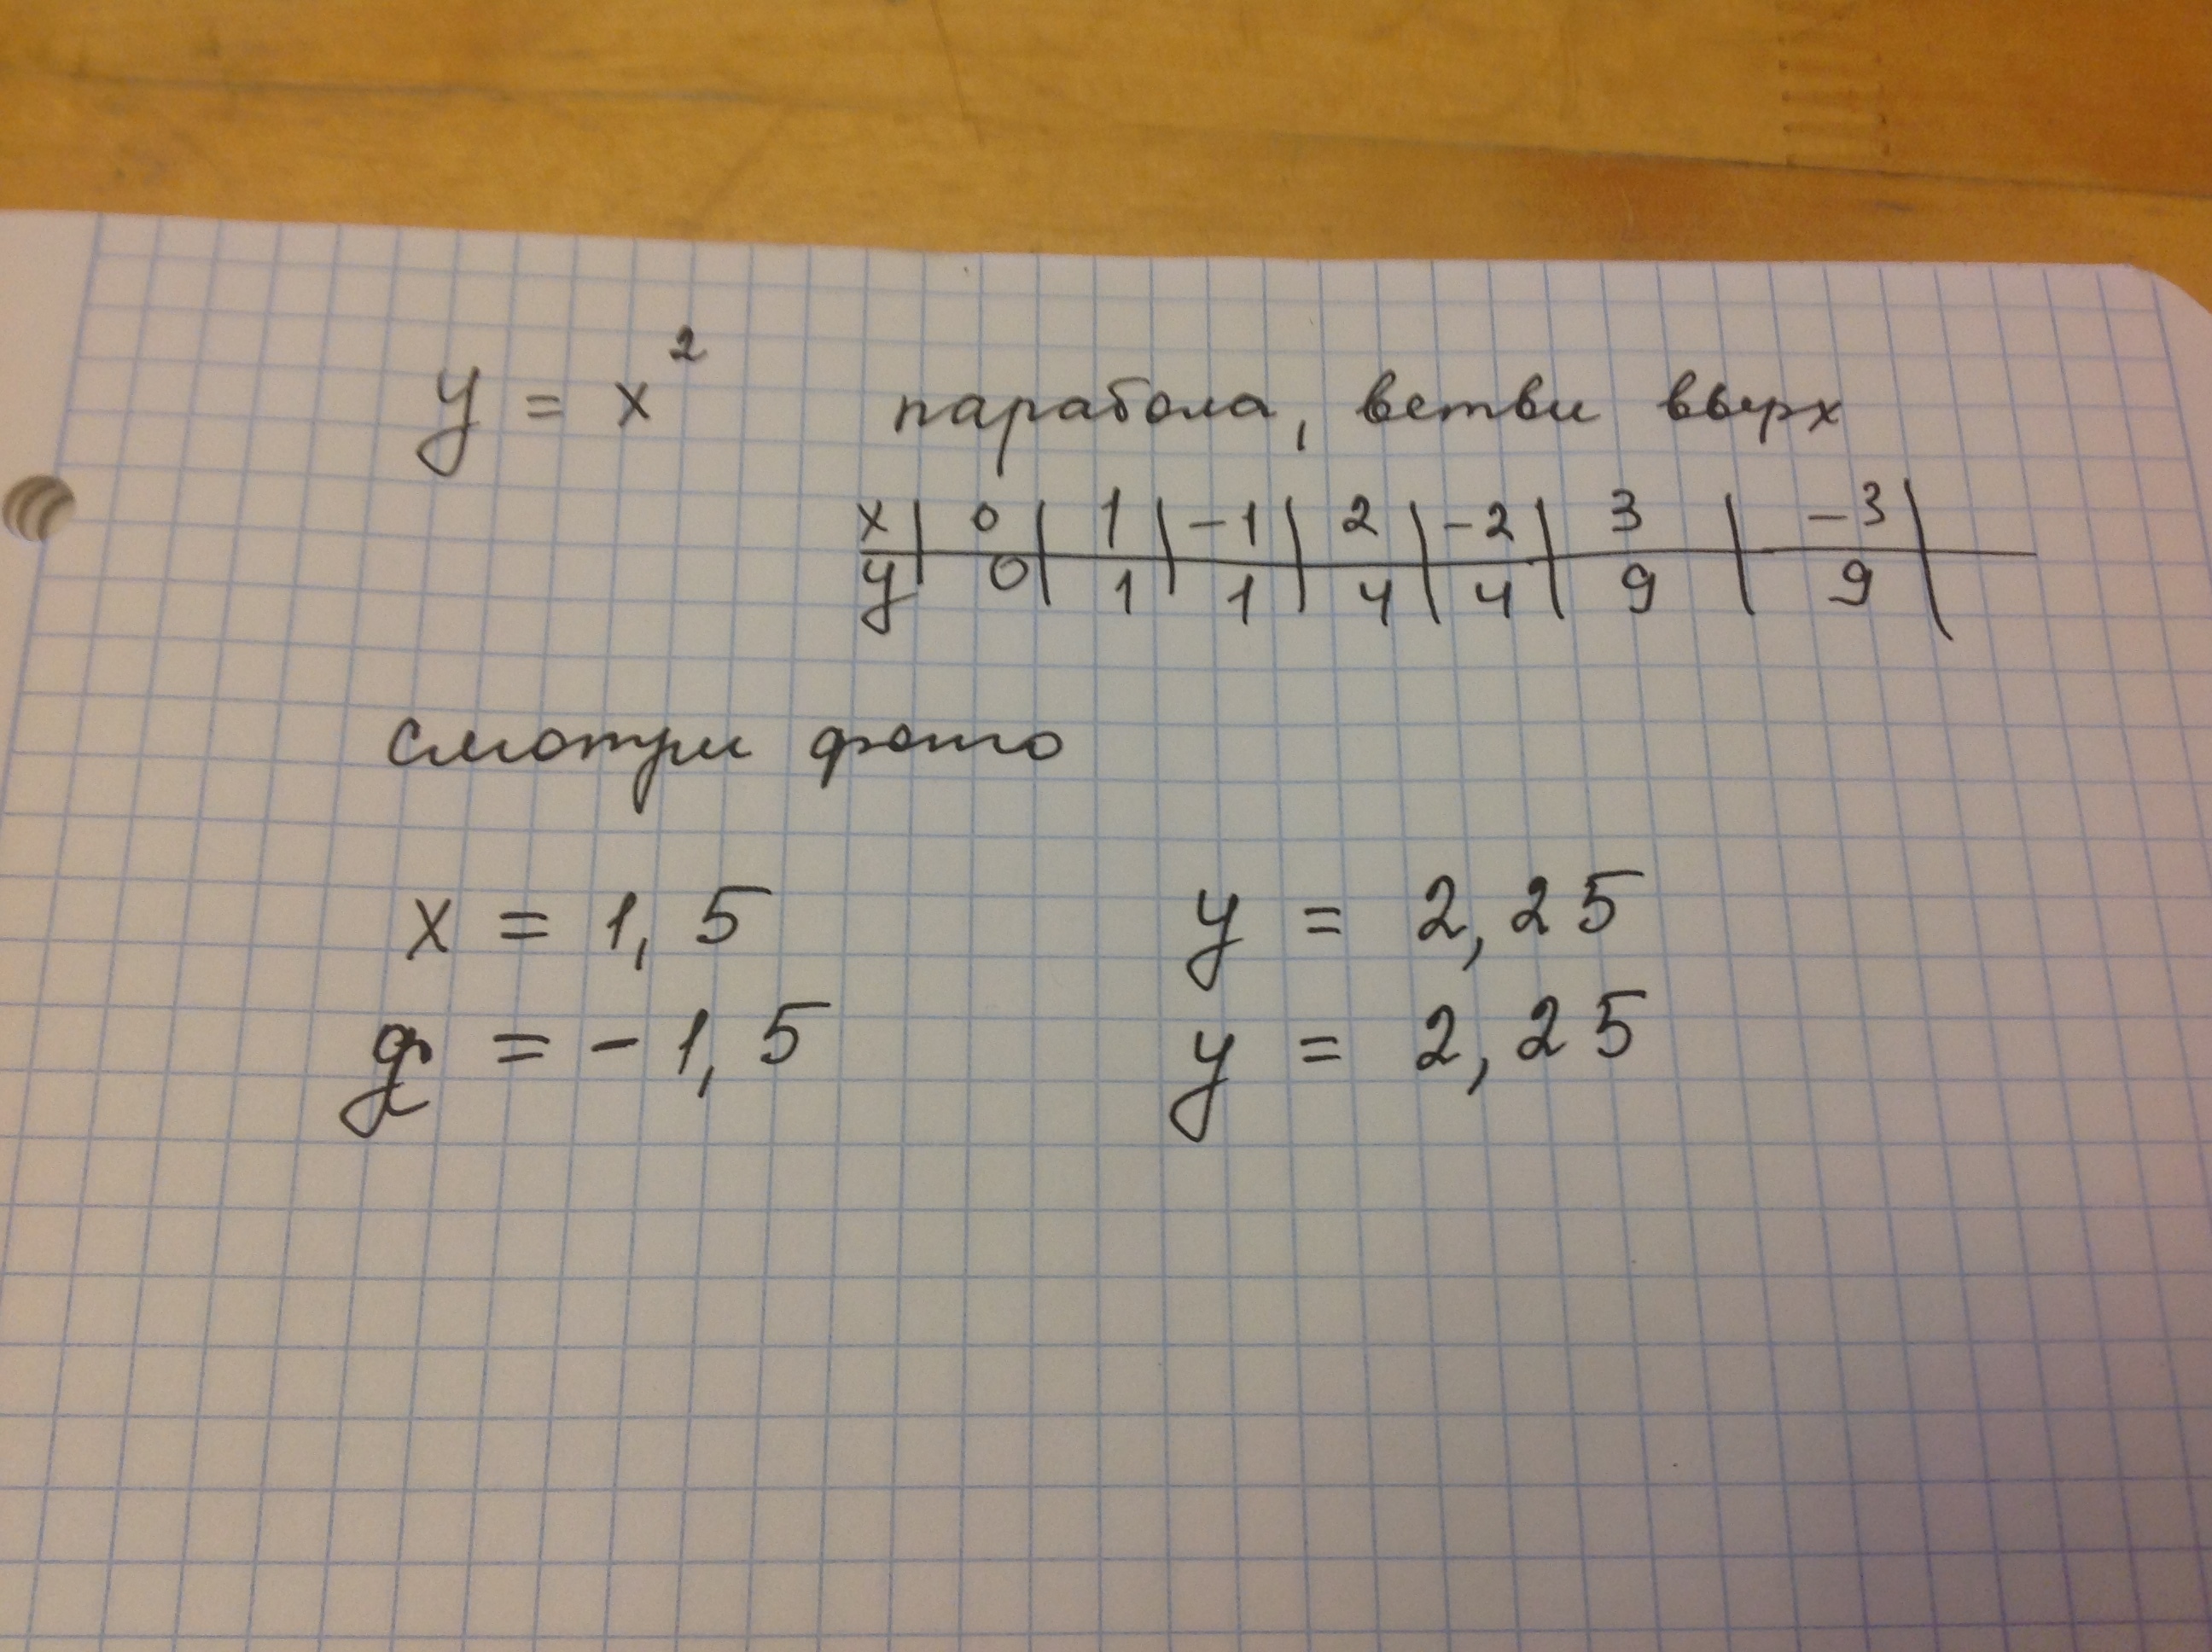 y = x² парабола, ветви вверх
x | 0 | 1 | -1 | 2 | -2 | 3 | -3 |
y | 0 | 1 | 1 | 4 | 4 | 9 | 9 |
смотри фото
x = 1,5 y = 2,25
x = -1,5 y = 2,25